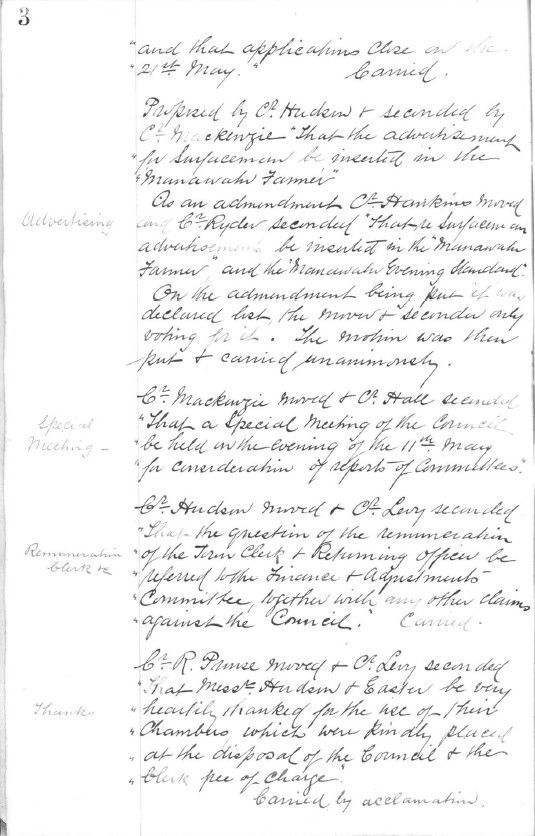 3
"and that applications close on the
"21st May." Carried.
Proposed by Cr. Hudson & seconded by
Cr. Mackenzie "That the advertisement
"for Surfaceman be inserted in the
"Manawatu Farmer"
As an admendment Cr. Hankins moved
Advertising and Cr. Ryder seconded "That re Surfaceman
advertisement be inserted in the "Manawatu
Farmer" and the "Manawatu Evening Standard".
On the admendment being put it was
declared lost, the mover & seconder only
voting for it. The motion was then
put & carried unanimously.
Cr. Mackenzie moved & Cr. Hall seconded
Special "That a Special Meeting of the Council
Meeting - "be held on the evening of the 11th May
"for consideration of reports of Committees".
Cr. Hudson moved & Cr. Levy seconded
"That the question of the remuneration
Remuneration "of the Town Clerk & Returning officer be
Clerk &c "referred to the Finance & Adjustments
"Committee, together with any other claims
"against the Council." Carried.
Cr. R. Prouse moved & Cr. Levy seconded
"That Messrs. Hudson & Easter be very
Thanks "heartily thanked for the use of their
"Chambers which were kindly placed
"at the disposal of the Council & the
"Clerk free of charge".
Carried by acclamation.